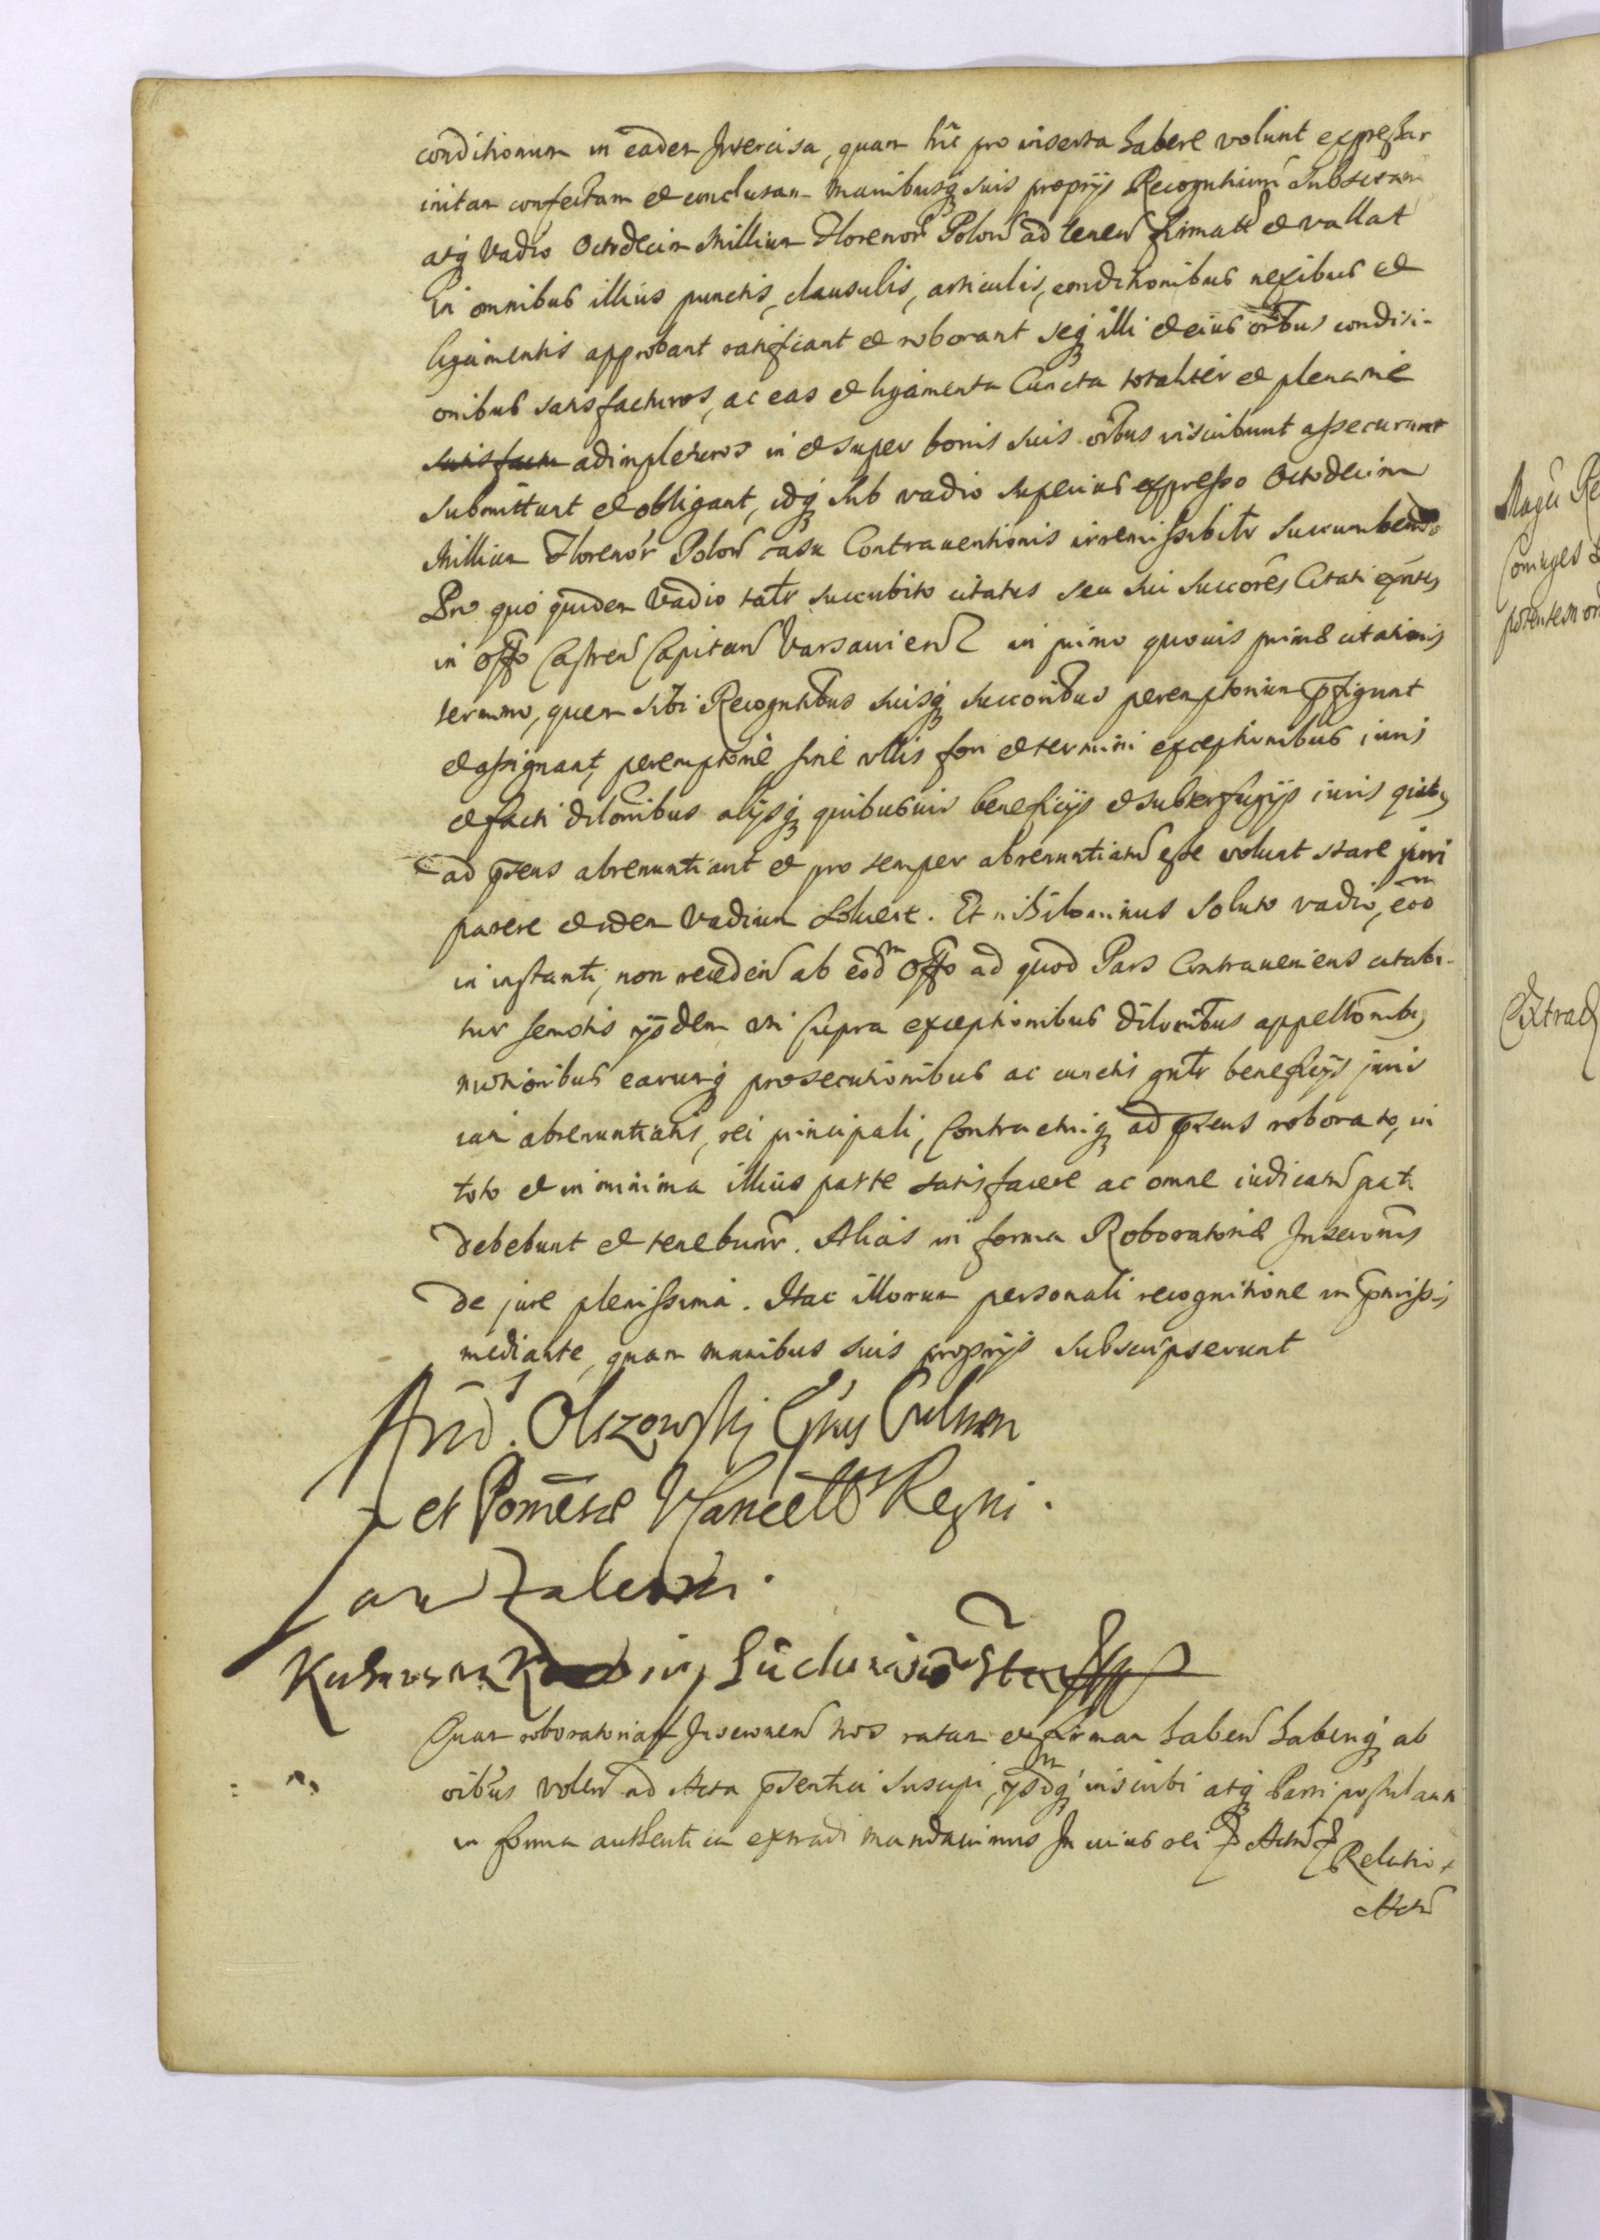 conditionum in eadem Intercisa, quam hic pro inserta habere volunt expressar
initam confectam et conclusam manibusq suis proprijs Recognitium Subscram
atq Vadio Octodecim Millium Florenor Polon ad tenen firmatt et vallat
in omnibus illius punctis, clausulis, articulis, conditionibus nexibus et
ligamentis approbant ratificant et roborant seq illi et eius oibus conditi-
onibus satisfacturos, ac eas et ligamenta Cuncta totaliter et plenarie
satisfactu adimpleturos in et super bonis suis oibus inscribunt assecurant
submittunt et obligant, idq sub vadio superius expresso Octodecim
Millium Florenor Polon casu Contraventionis irremissibiltr succumbendo
Pro quo quidem Vadio taltr succubito citatus seu sui succores Citati exntes
in offo Castren Capitan Varsavien in primo quovis primae citationis
termino, quem sibi Recogntibus suisq succoribus peremptorium pfigunt
et assignant, peremptorie sine ullis fori et termini exceptionibus iuris
et facti dilonibus alijsq quibusvis beneficijs et subterfugijs iuris qibus
ad psens abrenuntiant et pro semper abrenuntiatu esse volunt stare juri
parere et idem Vadium solvere. Et nihilominus soluto vadio, eod
in instanti, non recedendo ab eodm offo ad quod Pars Contraveniens citabi-
tur semotis ijsdem uti supra exceptionibus dilonibus appellonibus
motionibus earumq prosecutionibus ac cunctis gnltr beneficijs juris
iam abrenuntiatis, rei principali, Contractuiq ad psens roborato, in
toto et in minima illius parte satisfacere ac omne iudicatu pati
debebunt et tenebuntr. Alias in forma Roboratoriae Inscronis
de jure plenissima. Hac illorum personali recognitione in pmissis
mediante, quam manibus suis proprijs subscripserunt
And. Olszowski Epus Culmen
et Pomesae VCancell Regni.
Jan Zaleski.
Quam roboratoriam Inscronem nos ratam et firmam haben haberiq ab
oibus volen ad Acta psentia suscipi, ijsdq inscribi atq Parti postulanti
in forma authentica extradi mandavimus In cuius rei p Actu p
Relatio
Actu